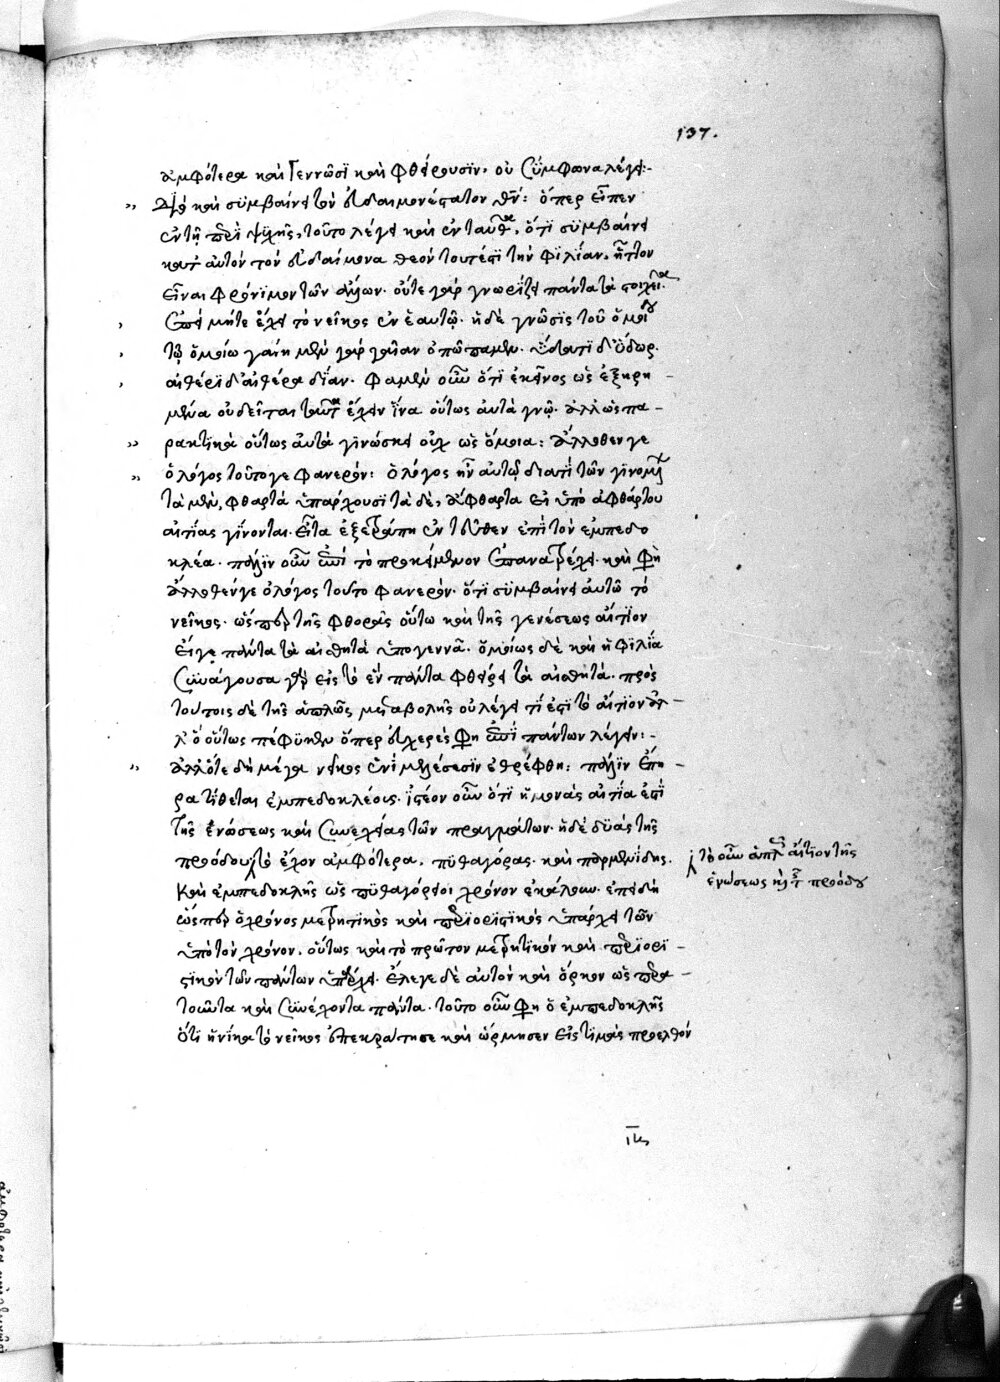 137.
ἀμφότερα καὶ γεννῶσϊ καὶ φθείρουσϊν· οὐ σύμφωνα λέγει:-
Διὸ καὶ συμβαίνει τὸν εὐδαιμονέστατον θν̄: ὅπερ εἶπεν
ἐν τῇ περὶ ψυχῆς, τοῦτο λέγει καὶ ἐνταῦθα, ὅτϊ συμβαίνει
κατ αὐτὸν τὸν εὐδαίμονα θεὸν τουτέστϊ τὴν φιλίαν, ἧττον
εἶναι φρόνϊμον τῶν ἄλλων· οὔτε γὰρ γνωρίζει πάντα τὰ στοιχεῖα·
ἐπεὶ μήτε ἔχει τὸ νεῖκος ἐν ἑαυτῷ· ἡ δὲ γνῶσϊς τοῦ ὁμοίου
τῷ ὁμοίω γαίη μὲν γὰρ γαῖαν ὀπώπαμεν· ὕδατϊ δ' ὕδωρ·
αἰθέρϊ δ' αἰθέρα δῖαν· φαμὲν οὖν ὅτϊ ἐκεῖνος ὡς ἐξηρη-
μένα οὐ δεῖται ταῦτα ἔχειν ἵνα οὕτως αὐτὰ γνῷ· ἀλλ ὡς πα-
ρακτϊκὰ οὕτως αὐτὰ γϊνώσκει οὐχ ὡς ὅμοια: ἄλλοθεν γε
ὁ λόγος τοῦτο γε φανερόν: ὁ λόγος ἦν αὐτῷ διατί τῶν γϊνομένων
τὰ μὲν, φθαρτὰ ὑπάρχουσϊ τὰ δὲ, ἄφθαρτα εἰ ὑπὸ ἀφθάρτου
αἰτίας γίνονται· εἶτα ἐξετράπη ἐντεῦθεν ἐπὶ τὸν ἐμπεδο
κλέα· πάλϊν οὖν ἐπὶ τὸ προκείμενον ἐπανατρέχει· καὶ φη
ἄλλοθέν γε ὁ λόγος τοῦτο φανερόν· ὅτϊ συμβαίνει αὐτῶ τὸ
νεῖκος· ὥσπερ τῆς φθορᾶς οὕτω καὶ τῆς γενέσεως αἴτϊον
εἴγε πάντα τὰ αἰσθητὰ ὑπογεννᾶ· ὁμοίως δὲ καὶ ἡ φϊλία
συνάγουσα γὰρ εἰς τὸ ἓν πάντα φθείρει τὰ αἰσθητά· πρὸς
τούτοις δὲ τῆς ἁπλῶς μεταβολῆς οὐ λέγει τί ἐστϊ τὸ αἴτϊον ἀλ-
λ' ὃ οὕτως πέφυκεν ὅπερ εὐχερὲς φη ἐπὶ πάντων λέγειν:-
ἀλλ' ὅτε δὴ μέγα νεῖκος ἐνὶ μελέεσσϊν ἐθρέφθη: πάλϊν ἔπη-
ρα τίθεται ἐμπεδοκλέους· ἰστέον οὖν ὅτϊ ἡ μονὰς αἰτία ἐστὶ
τῆς ἑνώσεως καὶ συνεχείας τῶν πραγμάτων· ἡ δὲ δυὰς τῆς
προόδου τὸ ἔχον ἀμφότερα, πυθαγόρας· καὶ παρμενίδης,
καὶ ἐμπεδοκλῆς ὡς πυθαγόρειοι χρόνον ἐκάλουν· ἐπειδὴ
ὥσπερ ὁ χρόνος μετρητϊκὸς καὶ περϊορϊστϊκὸς ὑπάρχει τῶν
ὑπὸ τὸν χρόνον, οὕτως καὶ τὸ πρῶτον μετρητϊκὸν καὶ περϊορϊ-
στϊκὸν τῶν πάντων ὑπάρχει· ἔλεγε δὲ αὐτὸν καὶ ὅρκον ὡς περα-
τοῦντα καὶ συνέχοντα πάντα· τοῦτο οὖν φη ὁ ἐμπεδοκλῆς
ὅτϊ ἡνίκα τὸ νεῖκος ἐπεκράτησε καὶ ὥρμησεν εἰς τϊμὰς προελθὸν
τὸ οὖν ἁπλῶς αἴτϊον τῆς
ἑνώσεως καὶ τῆς προόδου